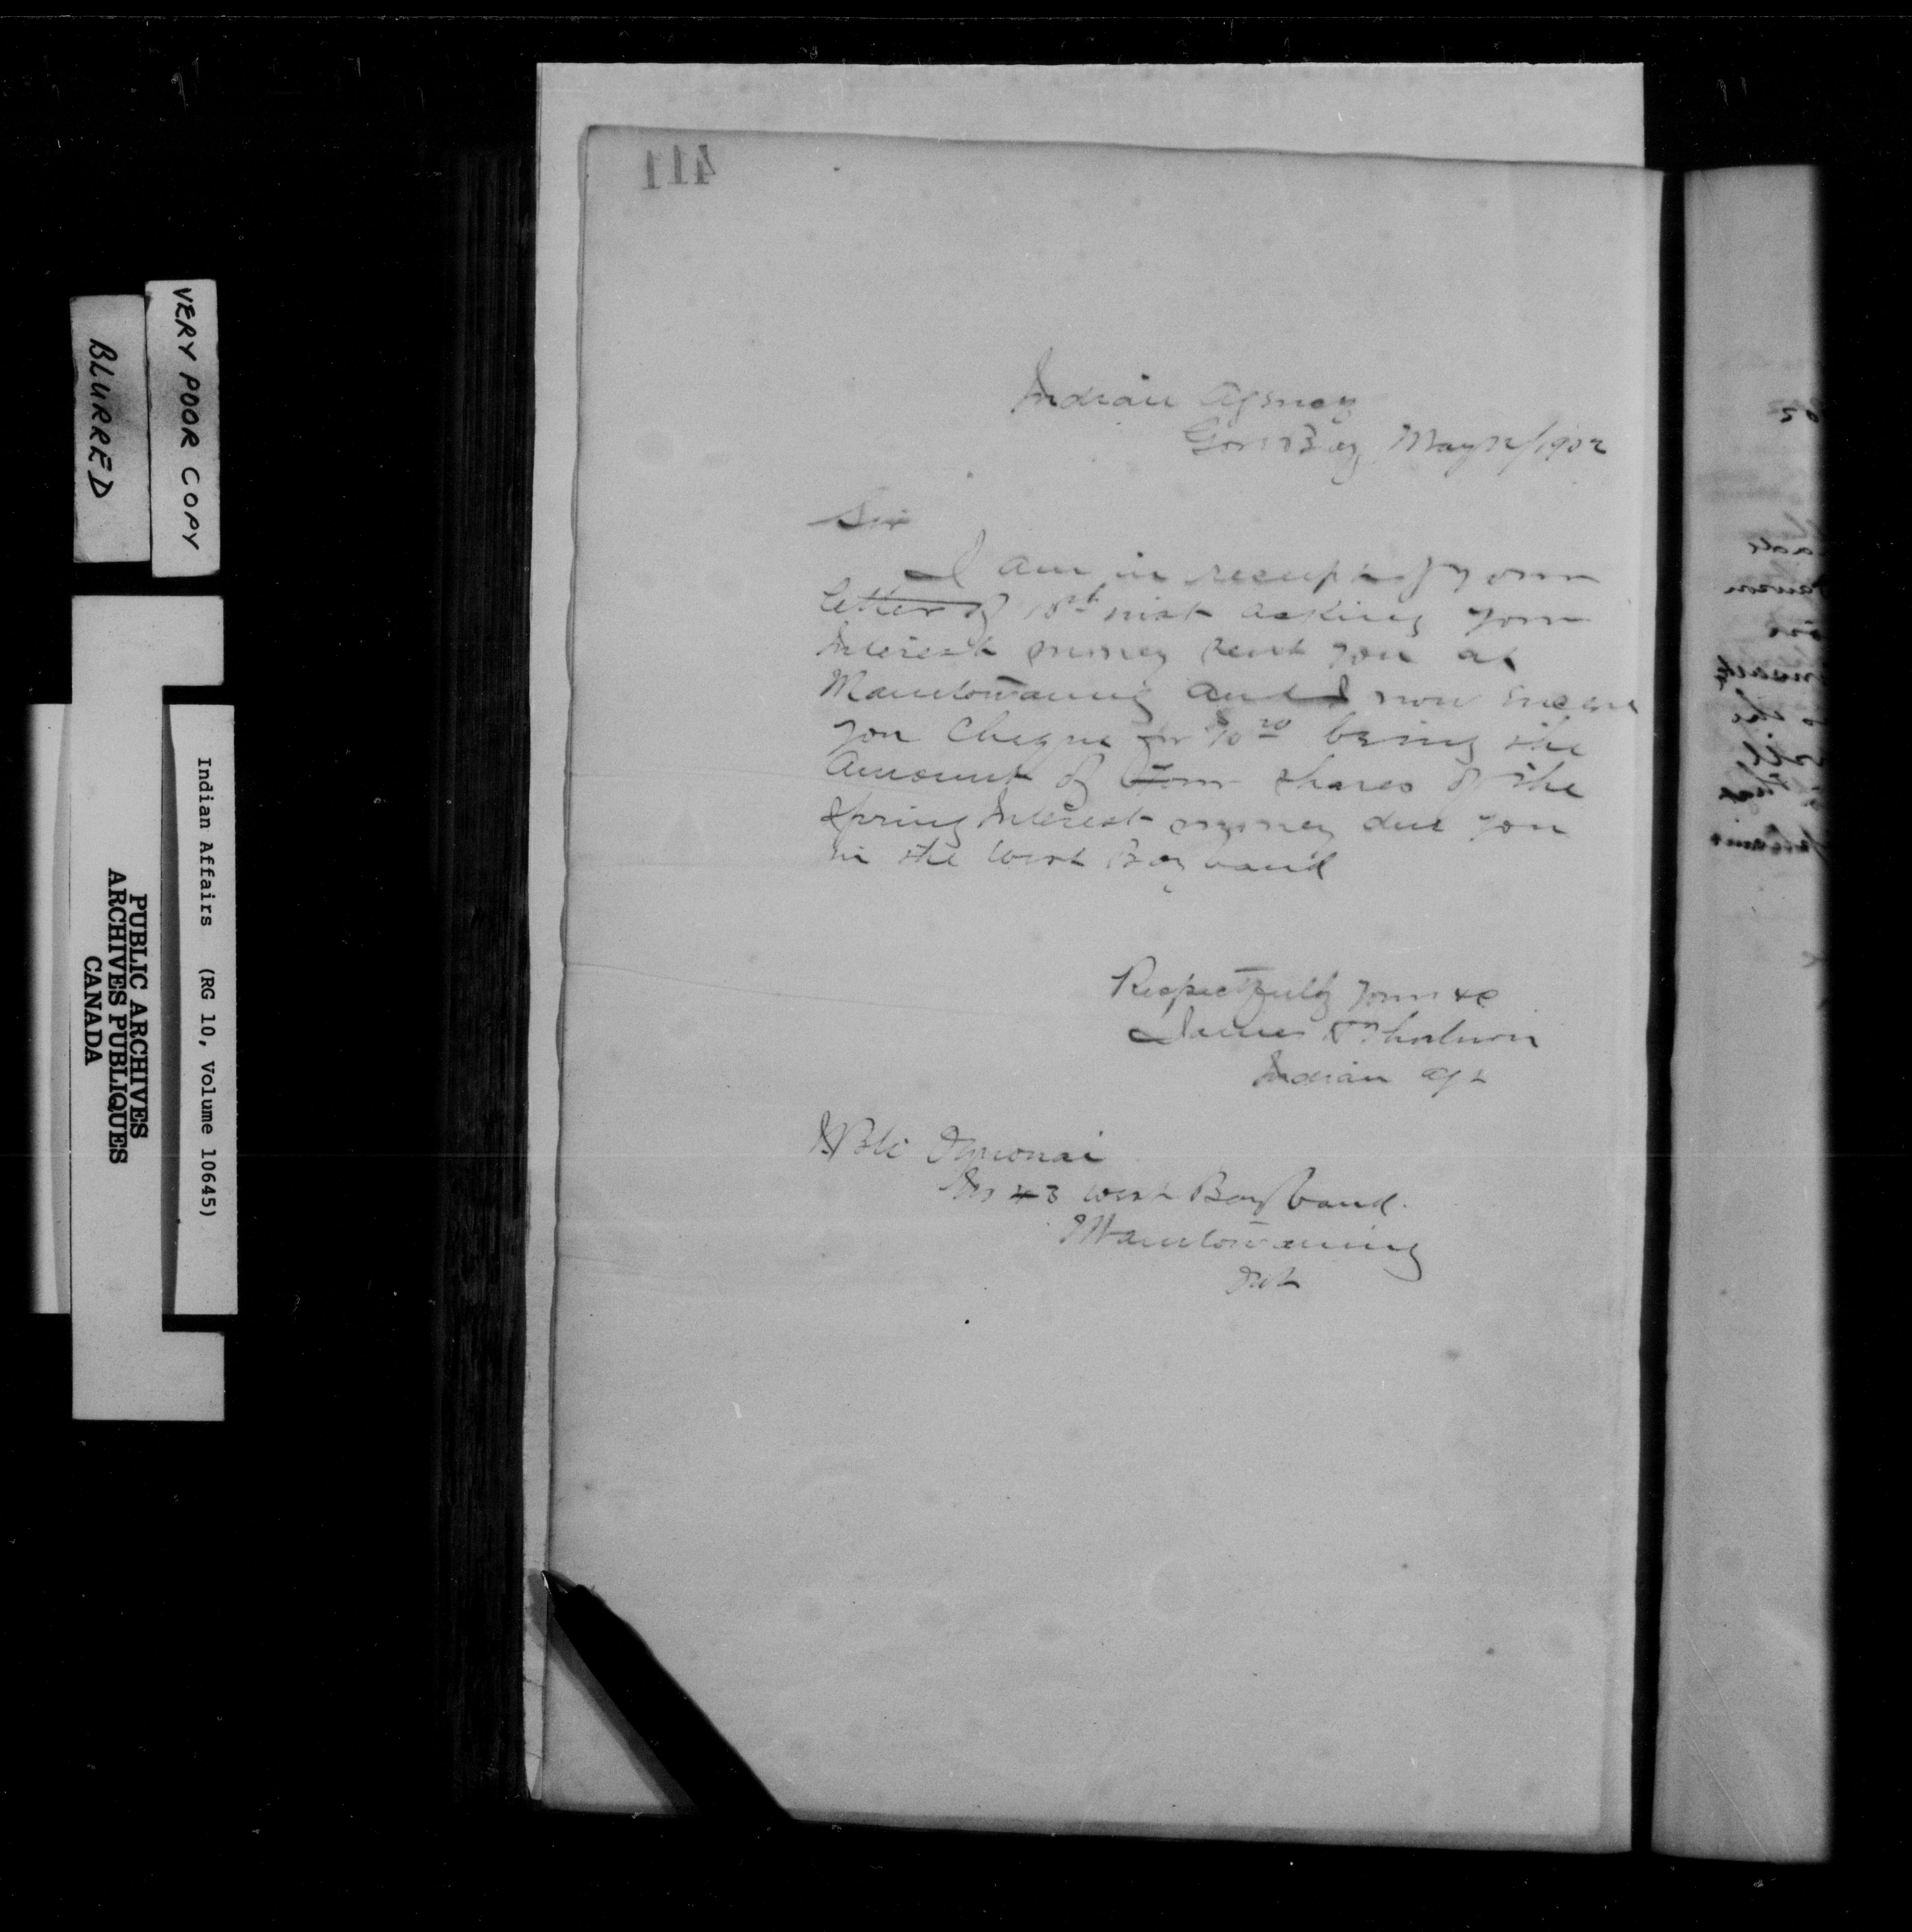 411
Indian Agency
Gore Bay May 12/1902
Sir
I am in receipt of your
letter of 10th inst asking your
Interest money sent you at
Manitowaning and I now enclose
you Cheque for being the
Amount of your shares of the
Spring Interest money due you
in the West Bay band
Respectfully yours &c
James Thorburn
Indian Agt
No 43 West Bay band.
Manitowaning
Ont
VERY POOR COPY
BLURRED
Indian Affairs (RG 10, Volume 10645)
PUBLIC ARCHIVES
ARCHIVES PUBLIQUES
CANADA